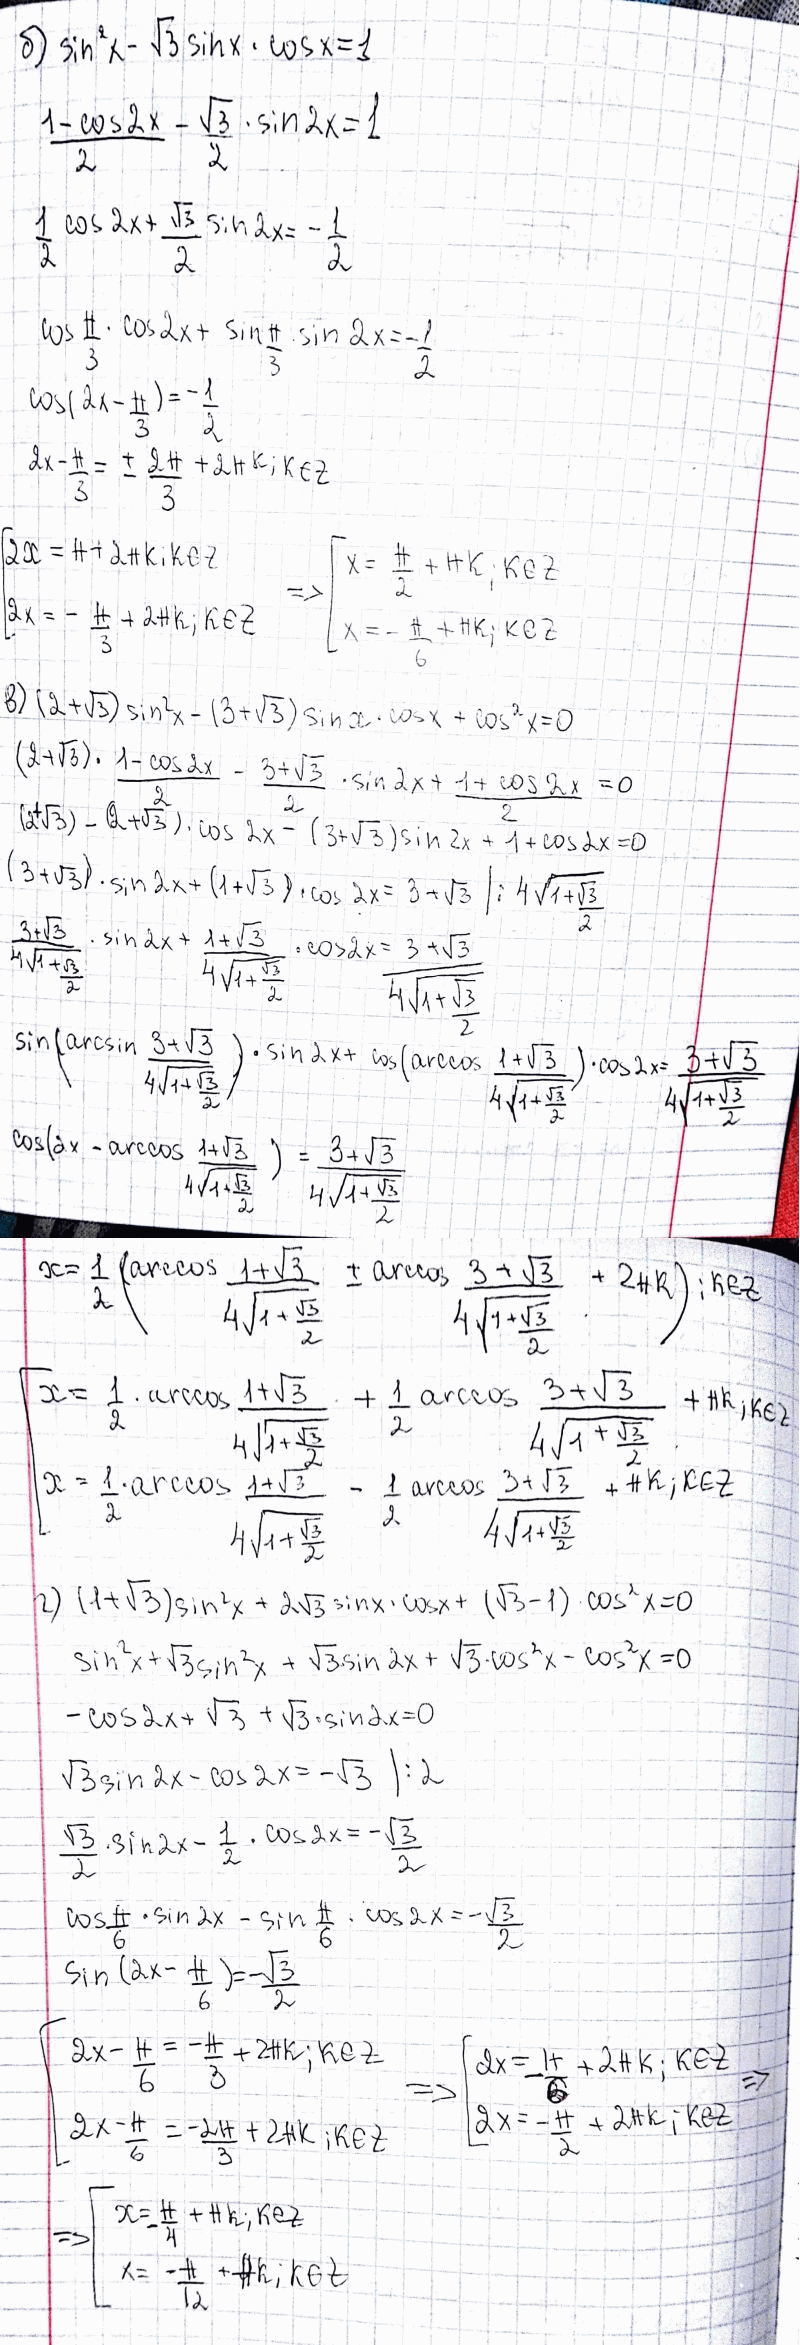 б) sin²x - √3 sinx · cosx = 1
(1-cos2x)/2 - √3/2 · sin2x = 1
1/2 cos2x + √3/2 sin2x = -1/2
cos π/3 · cos2x + sin π/3 · sin2x = -1/2
cos(2x - π/3) = -1/2
2x - π/3 = ± 2π/3 + 2πk; k∈Z
[2x = π + 2πk; k∈Z => [x = π/2 + πk; k∈Z
[2x = -π/3 + 2πk; k∈Z x = -π/6 + πk; k∈Z
в) (2+√3) sin²x - (3+√3) sinx · cosx + cos²x = 0
(2+√3) · (1-cos2x)/2 - (3+√3)/2 · sin2x + (1+cos2x)/2 = 0
(2+√3) - (2+√3) · cos2x - (3+√3) sin2x + 1 + cos2x = 0
(3+√3) · sin2x + (1+√3) · cos2x = 3+√3 | : 4√(1+√3/2)
(3+√3)/(4√(1+√3/2)) · sin2x + (1+√3)/(4√(1+√3/2)) · cos2x = (3+√3)/(4√(1+√3/2))
sin(arcsin (3+√3)/(4√(1+√3/2))) · sin2x + cos(arccos (1+√3)/(4√(1+√3/2))) · cos2x = (3+√3)/(4√(1+√3/2))
cos(2x - arccos (1+√3)/(4√(1+√3/2))) = (3+√3)/(4√(1+√3/2))
x = 1/2 (arccos (1+√3)/(4√(1+√3/2)) ± arccos (3+√3)/(4√(1+√3/2)) + 2πk); k∈Z
[x = 1/2 · arccos (1+√3)/(4√(1+√3/2)) + 1/2 arccos (3+√3)/(4√(1+√3/2)) + πk; k∈Z
x = 1/2 · arccos (1+√3)/(4√(1+√3/2)) - 1/2 arccos (3+√3)/(4√(1+√3/2)) + πk; k∈Z
г) (1+√3) sin²x + 2√3 sinx · cosx + (√3-1) · cos²x = 0
sin²x + √3 sin²x + √3 sin2x + √3 · cos²x - cos²x = 0
-cos2x + √3 + √3 · sin2x = 0
√3 sin2x - cos2x = -√3 | : 2
√3/2 · sin2x - 1/2 · cos2x = -√3/2
cos π/6 · sin2x - sin π/6 · cos2x = -√3/2
sin(2x - π/6) = -√3/2
[2x - π/6 = -π/3 + 2πk; k∈Z => [2x = -π/6 + 2πk; k∈Z =>
2x - π/6 = -2π/3 + 2πk; k∈Z 2x = -π/2 + 2πk; k∈Z
=> [x = -π/4 + πk; k∈Z
x = -π/12 + πk; k∈Z